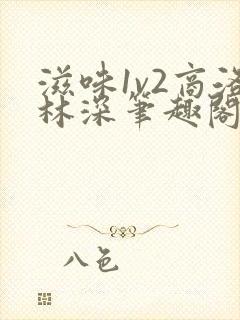 滋味1v2高洛
林深笔趣阁
八色